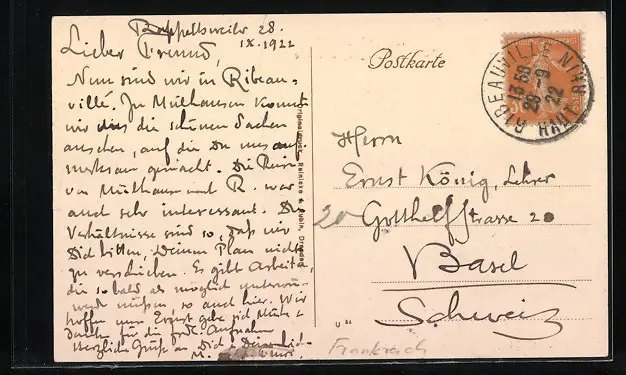 Rappoltsweiler 28.
IX. 1922
Lieber Freund,
Nun sind wir in Ribeau-
villé. In Mülhausen konnten
wir dies die schönen Sachen
ansehen, auf die Du uns auf-
merksam gemacht. Die Reise
von Mülhausen nach R. war
auch sehr interessant. Die
Verhältnisse sind so, daß wir
Dich bitten, Deinen Plan nicht
zu verschieben. Es gibt Arbeiten,
die so bald als möglich
werden müssen, so auch hier. Wir
hoffen nun Ernst gebe sich Mühe &
danken für die Aufnahme
Herzliche Grüße an Dich
M.
Originaldruck, Reinicke & Rubin, Dresden
Postkarte
RIBEAUVILLE HAUT-RHIN
13 50
28-9
22
Herrn
Ernst König, Lehrer
20 Gotthelfstrasse 20
Basel
Schweiz
Frankreich